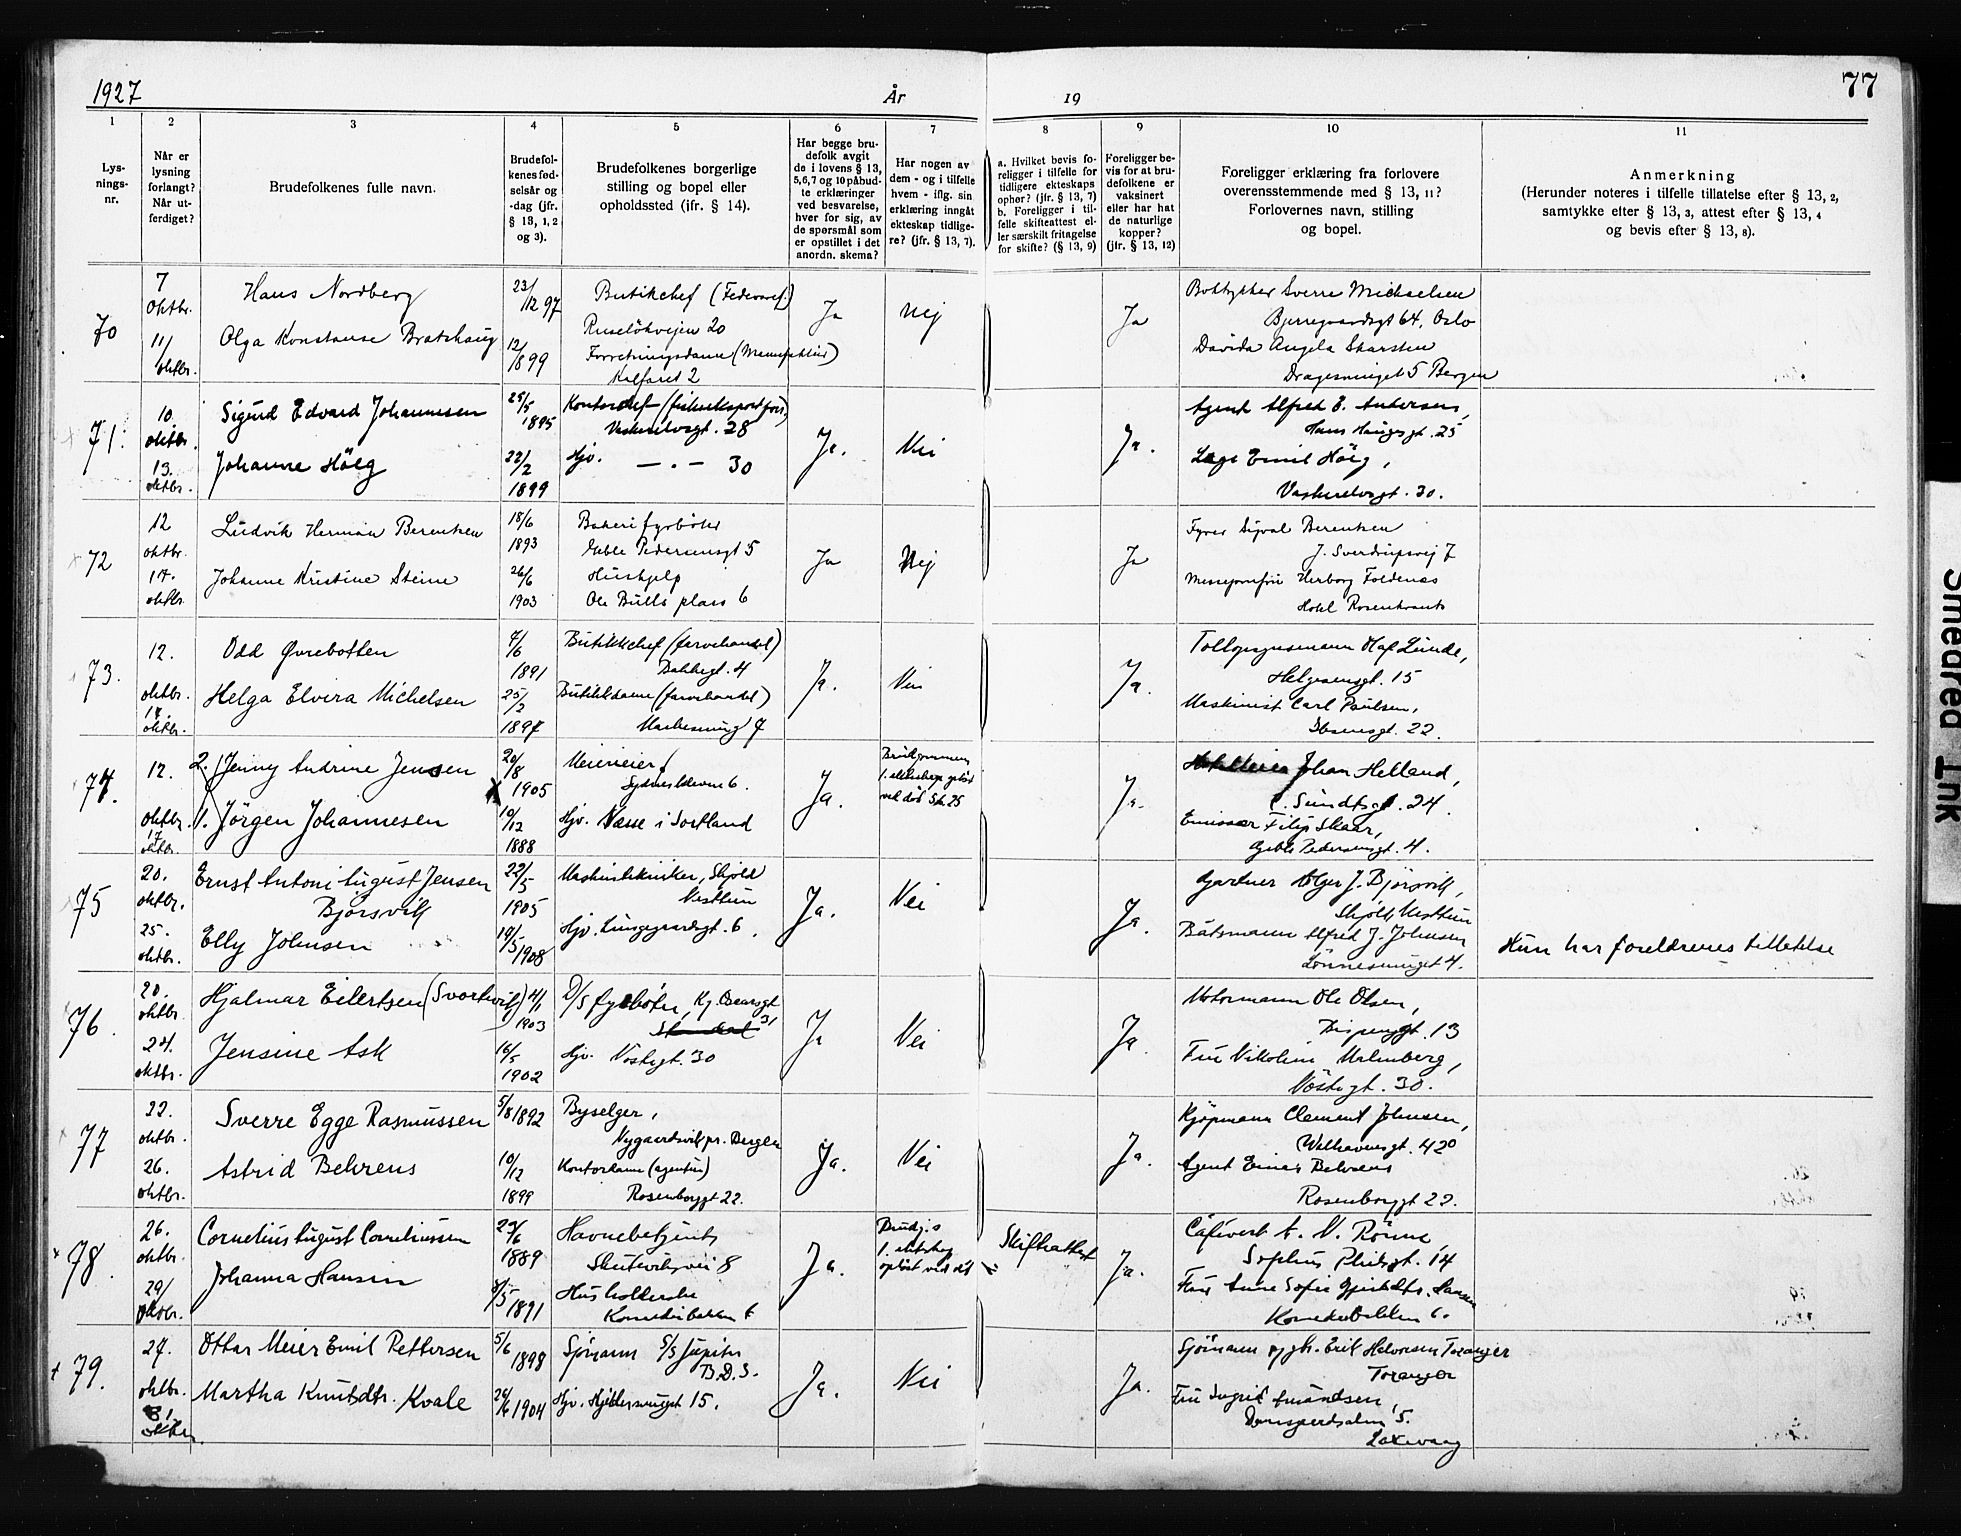 1927
År
19
77
1
2
3
4
5
6
7
8
9
10
11
Lys-
nings-
nr.
Når er
lysning
forlangt?
Når ut-
ferdiget?
Brudefolkenes fulle navn.
Brudefol-
kenes fød-
selsår og
-dag (jfr.
§ 13, 1, 2
og 3).
Brudefolkenes borgerlige
stilling og bopel eller
opholdssted (jfr. § 14).
Har begge bru-
defolk avgit
de i lovens § 13,
5, 6, 7 og 10 påbud-
te erklæringer
ved besvarelse,
hver for sig, av
de spørsmål som
er opstillet i det
anordn. skema?
Har nogen av
dem - og i tilfelle
hvem - iflg. sin
erklæring inngåt
ekteskap tidlige-
re? (jfr. § 13, 7).
a. Hvilket bevis fo-
religger i tilfelle for
tidligere ekteskaps
ophør? (jfr. § 13, 7)
b. Foreligger i til-
felle skifteattest el-
ler særskilt fritagelse
for skifte? (§ 13, 9)
Foreligger be-
vis for at bru-
defolkene er
vaksinert
eller har hat
de naturlige
kopper?
(jfr. § 13, 12)
Foreligger erklæring fra forlovere
overensstemmende med § 13, 11?
Forlovernes navn, stilling
og bopel.
Anmerkning
(Herunder noteres i tilfelle tillatelse efter § 13, 2,
samtykke efter § 13, 3, attest efter § 13, 4
og bevis efter § 13, 8).
70
7
Oktbr.
11/
oktbr.
Hans Nordberg
Olga Konstanse Bratshaug
23/
12 97
12/
1899
Butikchef
Ruseløkveien 20
Forretningsdame (Manufaktur)
Kalfaret 2
Ja
Nej
Ja
Sverre Michaelsen
Bjerregaardsgt 64, Oslo
Davida Angela Skarsten
5 Bergen
71.
10.
oktbr.
13.
oktbr.
Sigurd Edvard Johannesen
Johanne Höeg
25/5
1895
22/2
1899
Kontorchef
28
Hjv. — . — 30
Ja.
Nei
Ja.
Agent Alfred E. Andersen,
Hans Haugesgt. 25
Emil Höeg,
30.
72
12
oktbr.
17.
oktbr.
Ludvik Herman Berentsen
Johanne Kristine Steine
18/6
1893
26/6
1903
Bakeri fyrböter
Gable Pedersensgt 5
Hushjelp
Ole Bulls plass 6
Ja
Nej
Ja
Fyrer Sigval Berentsen
J. Sverdrupsvej 7
Herborg Foldenæs
Hotel Rosenkrants
73.
12.
oktbr.
17.
oktbr.
Odd Øvrebotten
Helga Elvira Michelsen
7/6
1891
25/2
1897
Butikkchef (farvehandel)
Bakkegt. 4
Butikkdame (farvehandel)
7
Ja.
Nei
Ja.
Tollopsynsmann Olaf Lunde,
Helgesensgt. 15
Maskinist Carl Paulsen,
Ibsensgt. 22.
74.
12.
oktbr.
17
oktbr.
2. Jenny Andrine Jensen
1. Jörgen Johannesen
20/8
1905
10/12
1888
Meierieier,
6.
Hjv. Næsse i Sortland
Ja.
Brudgommens
1. ekteskap opløst
ved död 5/4 25
Ja.
Johan Helland,
C. Sundtsgt. 24.
Emissær Filip Skaar,
Gable Pedersensgt. 4.
75
20.
oktbr.
25.
oktbr.
Ernst Antoni August Jensen
Bjørsvik
Elly Johnsen
22/5
1905
19/5 1908
Maskintekniker, Skjold
Nesttun
Hjv. Lungegaardsgt. 6.
Ja.
Nei
Ja.
Gartner Holger J. Bjørsvik,
Skjold, Nesttun
Båtsmann Alfred J. Johnsen
4.
Hun har foreldrenes tillatelse
76.
20.
oktbr.
24.
oktbr.
Hjalmar Eilertsen (Svortevik)
Jensine Ask
4/1
1903
16/5
1902
D/S fyrböter, Kg. Oscarsgt
31
Hjv. Nöstegt. 30
Ja
Nei
Ja.
Motormann Ole Olsen,
13
Fru Nikoline Malmberg,
Nöstegt. 30.
77
22.
oktbr.
26.
oktbr.
Sverre Egge Rasmussen
Astrid Behrens
5/8 1892
10/12
1899
Byselger,
Nygaardsvik pr. Bergen
Kontordame (agentur)
Rosenborggt 22.
Ja.
Nei
Ja.
Kjöpmann Clement Johnsen,
Welhavensgt. 42
Agent Einar Behrens
Rosenborggt 22.
78.
26.
oktbr.
29/
oktbr.
Cornelius August Corneliussen
Johanna Hansen
27/6
1889
9/5
1891
Havnebetjent
Skuteviksvei 8
Husholderske
Komediebakken 6
Ja.
Brudg.s
1. ekteskap
opløst ved död
Skifteattest
Ja.
Cafévert A. M. Rönne
Sophus 14
Anne Sofie Hansen
Komediebakken 6.
79.
27.
oktbr.
31
oktbr.
Ottar Meier Emil Pettersen
Martha Knutsdtr. Kvale
5/6
1898
26/6 1904
Sjömann S/S Jupiter
B.D.S.
Hjv. 15.
Ja.
Nei
Ja.
Sjömann Erik Halvorsen Toranger
Toranger
Fru Ingrid Amundsen,
5.
Laxevaag
Smedred Ink